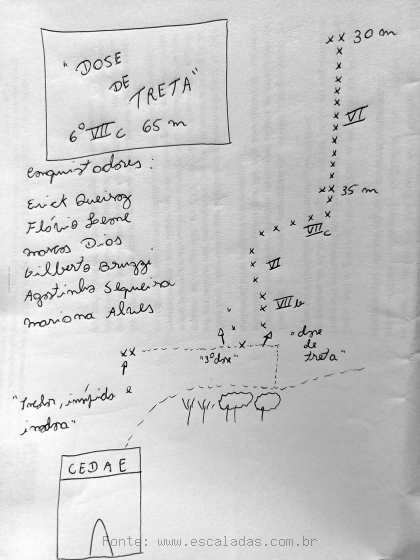 "DOSE
DE
TRETA"
6º VIIc 65 m
Conquistadores:
Erick Queiroz
Flávio Leone
Marcos Dios
Gilberto Bruzzi
Agostinho Sequeira
Mariana Alves
xx 30 m
VI
xx 35 m
VIIc
VI
VIIb
"3º dose"
"dose
de
treta"
xx
insípido e
CEDAE
Fonte: www.escaladas.com.br